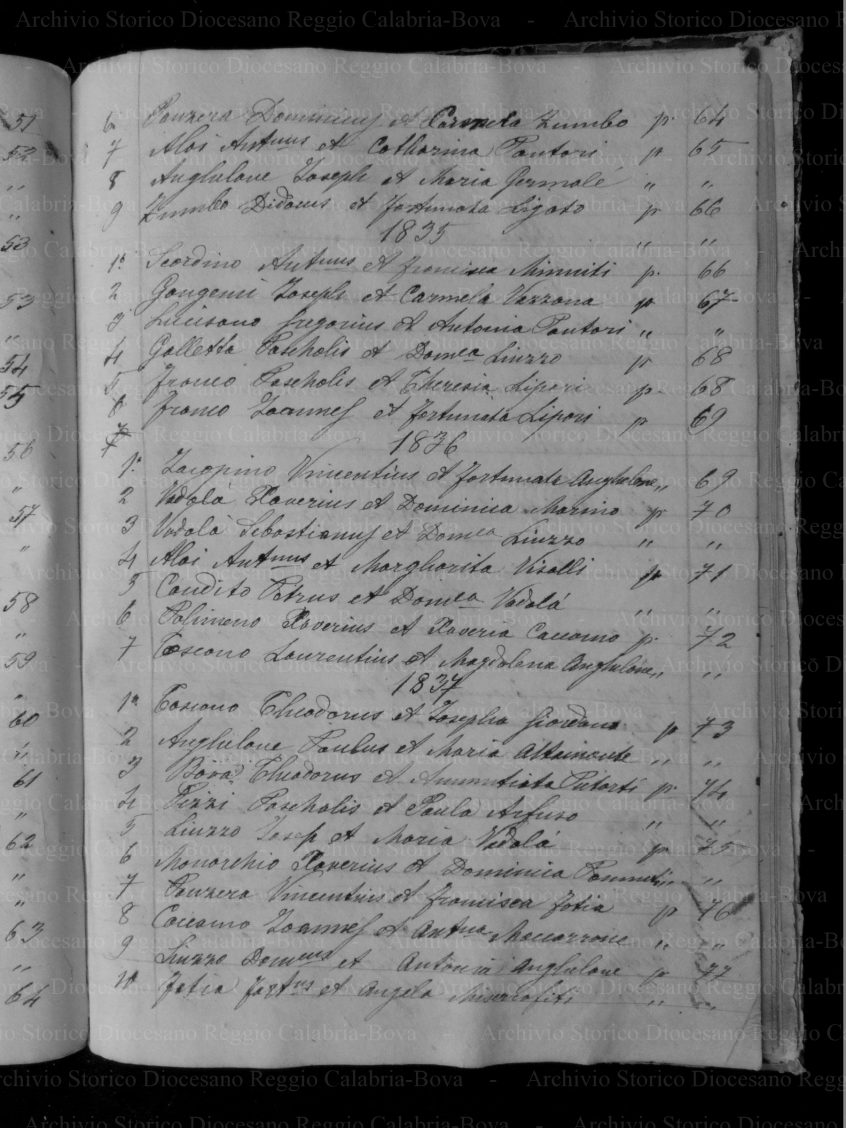 6 Panzera Dominicus et Carmela Zumbo p. 64
7 Aloi Antnus et Catharina Pontori p 65
8 Anghelone Joseph et Maria Germolé " "
9 Zumbo Didacus et Fortunata Ligato p 66
1835 " "
1° Scordino Antnus et Francisca Minniti p. 66
2 Gongemi Joseph et Carmela Vazzona p 67
3 Lucisano Gregorius et Antonia Pontori " "
4 Galletta Paschalis et Domca Liuzzo p 68
5 Franco Paschalis et Theresia Lipari p. 68
6 Franco Joannes et Fortunata Lipari p 69
7
1836
1° Vincentius et Fortunata Anghelone " 69
2 Vadalà Xaverius et Dominica Marino p 70
3 Vadalà Sebastianus et Domca Liuzzo " "
4 Aloi Antnus et Margharita Visalli p 71
5 Candito Petrus et Domca Vadalà " "
6 Polimeno Xaverius et Xaveria Caccamo p. 72
7 Toscano Laurentius et Magdalena Anghelone " "
1837
1° Toscano Theodorus et Josepha Giordano p 73
2 Anghelone Paulus et Maria Altomonte " "
3 Bova Theodorus et Annunciata Putortì p 74
4 Pizzi Paschalis et Paula Arfuso " "
5 Liuzzo Josep et Maria Vadalà p 75
6 Monorchio Xaverius et Dominica " "
7 Panzera Vincentius et Francisca Fotia p 76
8 Caccamo Joannes et Antna Maccarrone " "
9 Liuzzo Domnus et Antonia Anghelone p 77
10 Fotia Fortus et Angela Miserrafiti " "
51
52
"
"
53
53
"
54
55
56
"
57
"
58
"
59
"
60
"
61
"
62
"
"
63
"
64
Archivio Storico Diocesano Reggio Calabria-Bova